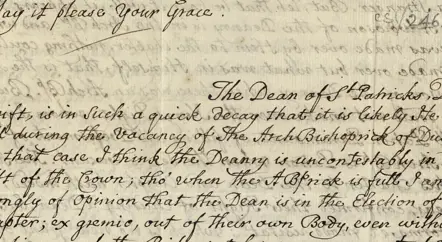 ay it please Your Grace.
25/246
The Dean of St Patricks,
ift, is in such a quick decay that it is likely He
during the Vacancy of The ArchBishoprick of Du
that case I think the Deanry is uncontestably in
lt of the Crown; tho' when the ABprick is full I am
ongly of opinion that the Dean is in the Election of
pter; ex gremio, out of their own Body, even with